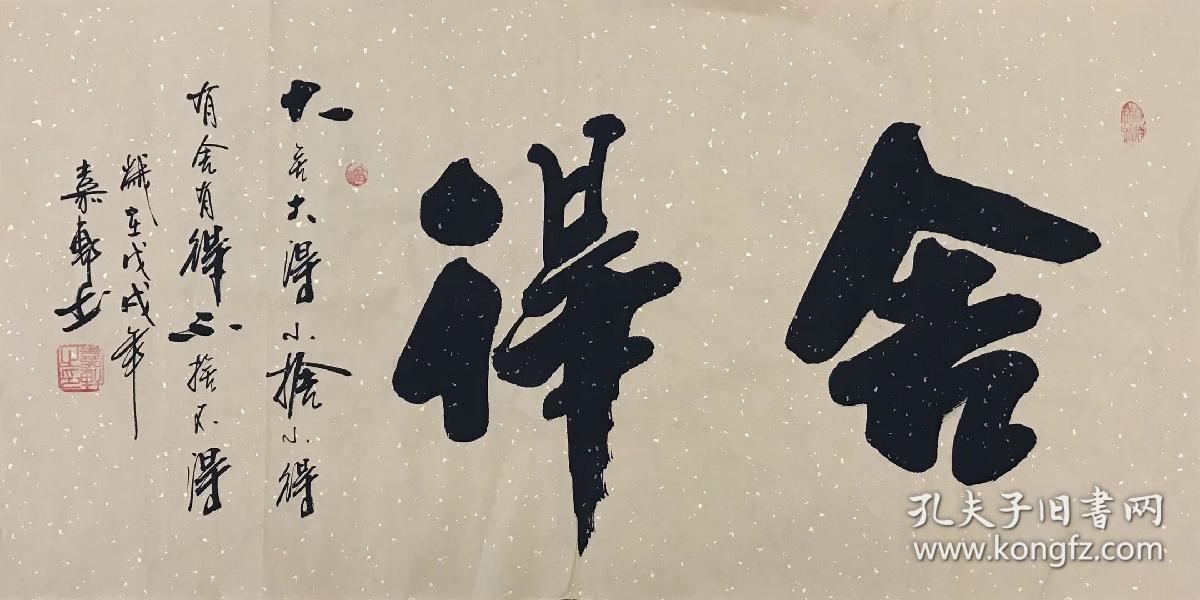 舍得
大舍大得小捨小得
有舍有得不捨不得
歲在戊戌年
嘉軒书
孔夫子旧書网
www.kongfz.com